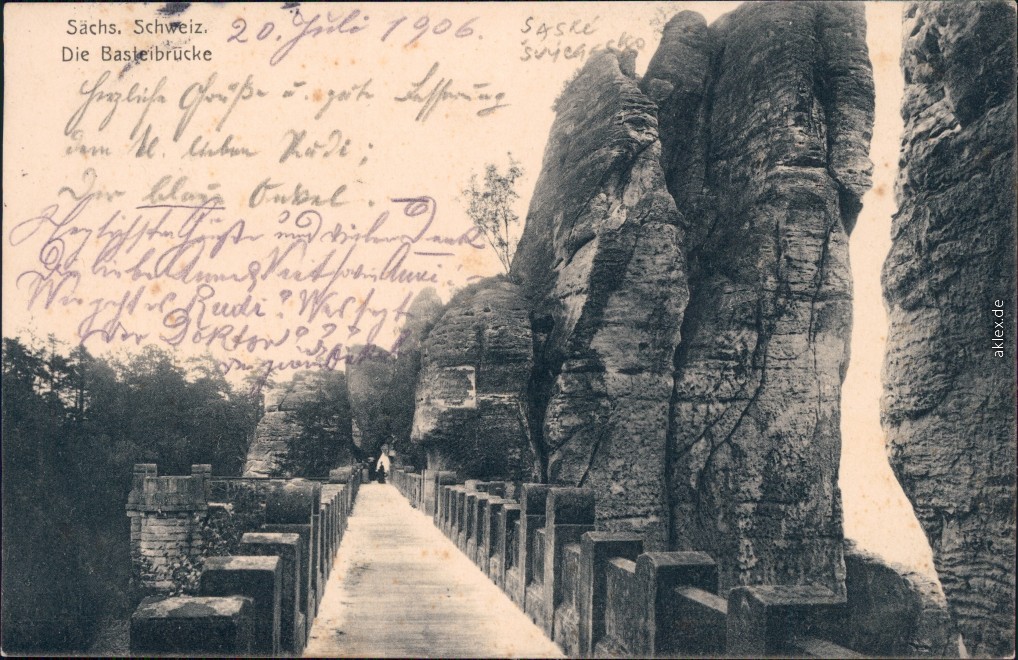 Sächs. Schweiz.
Die Basteibrücke
20. Juli 1906.
SASKÉ
Herzliche Grüße u. gute Besserung
dem lieben Rudi;
Der blaue Onkel.
Herzlichste Grüße und vielen Dank
Die liebe
Wie geht es Rudi? Was sagt
der Doktor???
aklex.de